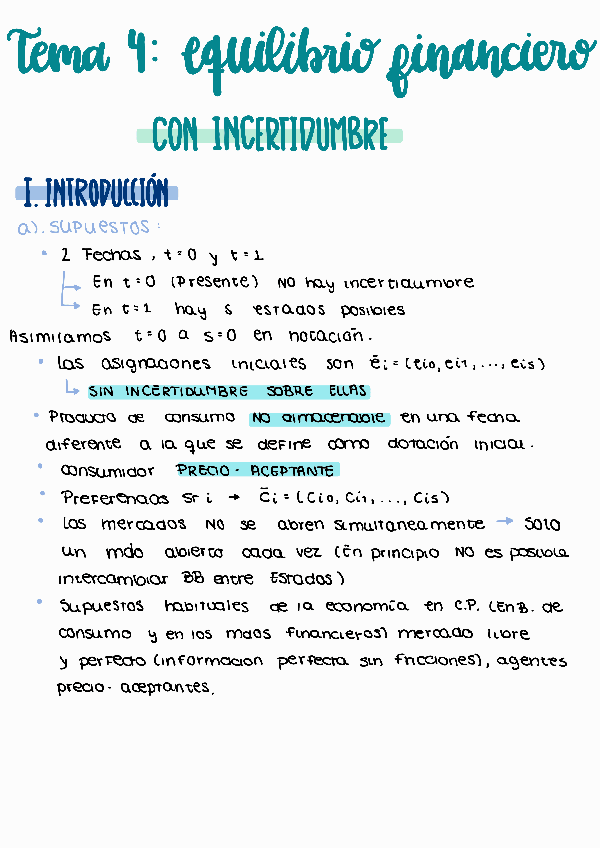 Tema 4: equilibrio financiero
CON INCERTIDUMBRE
I. INTRODUCCIÓN
a). SUPUESTOS:
• 2 Fechas, t=0 y t=1
↳ En t=0 (Presente) NO hay incertidumbre
↳ En t=1 hay S estados posibles
Asimilamos t=0 a s=0 en notación.
• Las asignaciones iniciales son ēi = (ei0, ei1, ..., eis)
↳ SIN INCERTIDUMBRE SOBRE ELLAS
• Producto de consumo NO almacenable en una fecha
diferente a la que se define como dotación inicial.
• consumidor PRECIO-ACEPTANTE
• Preferencias Sr i → c̄i = (Ci0, Ci1, ..., Cis)
• Los mercados NO se abren simultaneamente → SOLO
un mdo abierto cada vez (En principio NO es posible
intercambiar BB entre Estados)
• Supuestos habituales de la economía en C.P. (En B. de
consumo y en los mdos financieros) mercado libre
y perfecto (informacion perfecta sin fricciones), agentes
precio-aceptantes.